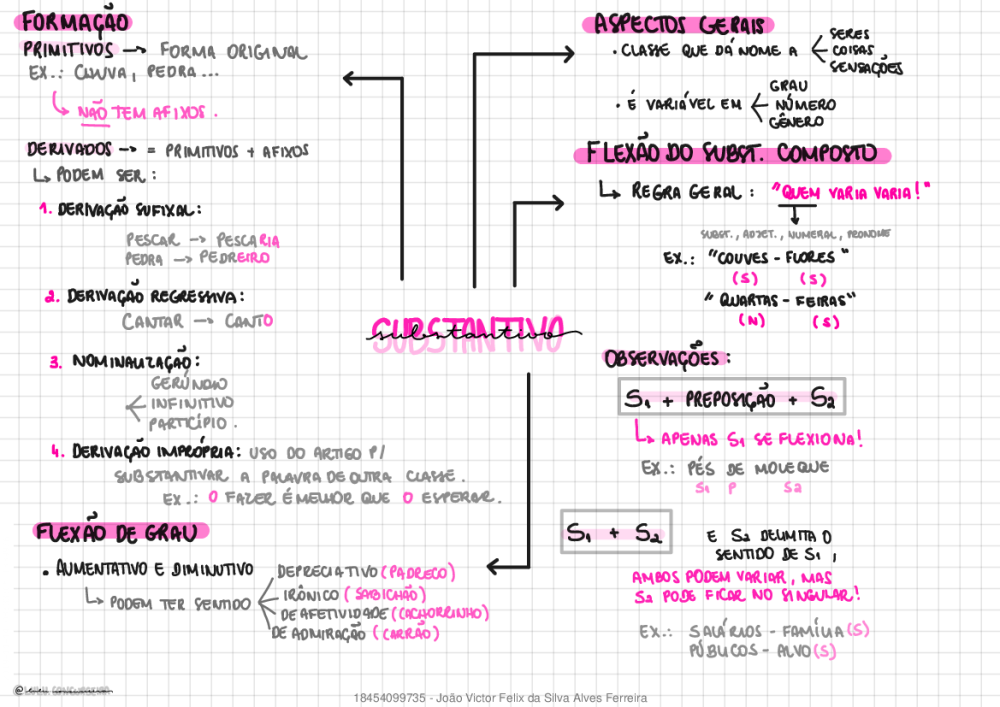 FORMAÇÃO
PRIMITIVOS → FORMA ORIGINAL
EX.: CHUVA, PEDRA...
↳ NÃO TEM AFIXOS.
DERIVADOS → = PRIMITIVOS + AFIXOS
↳ PODEM SER:
1. DERIVAÇÃO SUFIXAL:
PESCAR → PESCARIA
PEDRA → PEDREIRO
2. DERIVAÇÃO REGRESSIVA:
CANTAR → CANTO
3. NOMINALIZAÇÃO:
GERÚNDIO
INFINITIVO
PARTICÍPIO.
4. DERIVAÇÃO IMPRÓPRIA: USO DO ARTIGO P/
SUBSTANTIVAR A PALAVRA DE OUTRA CLASSE.
EX.: O FAZER É MELHOR QUE O ESPERAR.
FLEXÃO DE GRAU
• AUMENTATIVO E DIMINUTIVO
↳ PODEM TER SENTIDO
DEPRECIATIVO (PADRECO)
IRÔNICO (SABICHÃO)
DE AFETIVIDADE (CACHORRINHO)
DE ADMIRAÇÃO (CARRÃO)
SUBSTANTIVO
substantivo
ASPECTOS GERAIS
• CLASSE QUE DÁ NOME A
SERES
COISAS
SENSAÇÕES
• É VARIÁVEL EM
GRAU
NÚMERO
GÊNERO
FLEXÃO DO SUBST. COMPOSTO
↳ REGRA GERAL: "QUEM VARIA VARIA!"
SUBST., ADJET., NUMERAL, PRONOME
EX.: "COUVES - FLORES"
(S) (S)
"QUARTAS - FEIRAS"
(N) (S)
OBSERVAÇÕES:
S1 + PREPOSIÇÃO + S2
↳ APENAS S1 SE FLEXIONA!
EX.: PÉS DE MOLEQUE
S1 P S2
S1 + S2
E S2 DELIMITA O
SENTIDO DE S1,
AMBOS PODEM VARIAR, MAS
S2 PODE FICAR NO SINGULAR!
EX.: SALÁRIOS - FAMÍLIA(S)
PÚBLICOS - ALVO(S)
18454099735 - João Victor Felix da Silva Alves Ferreira